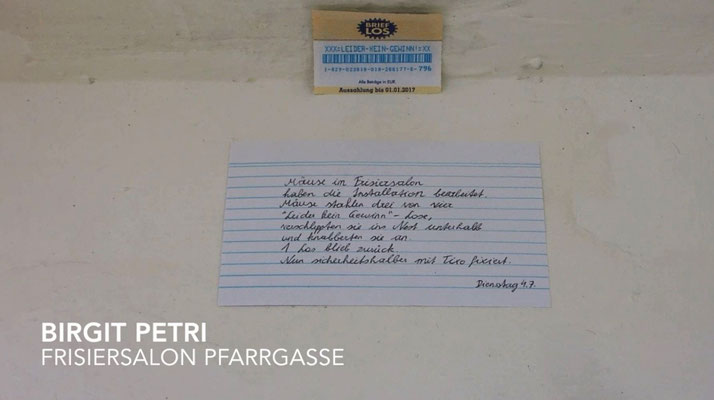 BRIEF
LOS
XXX=LEIDER-KEIN-GEWINN!=XX
Alle Beträge in EUR.
Auszahlung bis 01.01.2017
Mäuse im Frisiersalon
haben die Installation bearbeitet.
Mäuse stahlen drei von vier
"Leider kein Gewinn"-Lose,
verschleppten sie ins Nest unterhalb
und knabberten sie an.
1 Los blieb zurück
Nun sicherheitshalber mit Tixo fixiert.
Dienstag 4.7.
BIRGIT PETRI
FRISIERSALON PFARRGASSE